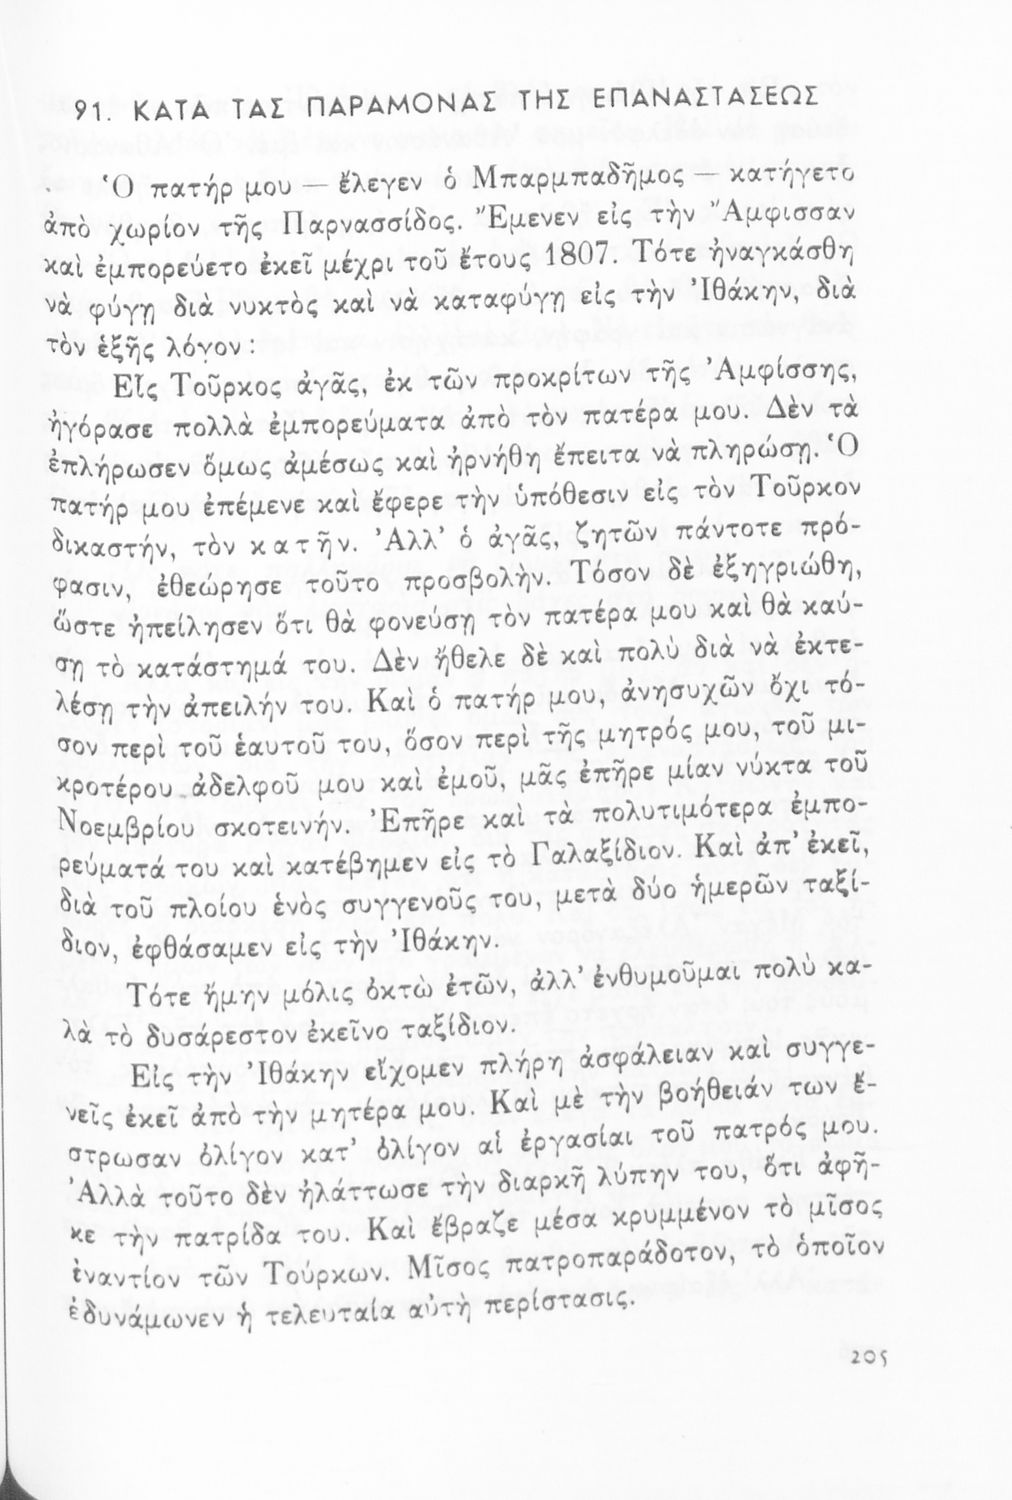 91. ΚΑΤΑ ΤΑΣ ΠΑΡΑΜΟΝΑΣ ΤΗΣ ΕΠΑΝΑΣΤΑΣΕΩΣ
Ὁ πατήρ μου — ἔλεγεν ὁ Μπαρμπαδῆμος — κατήγετο
ἀπὸ χωρίον τῆς Παρνασσίδος. Ἔμενεν εἰς τὴν Ἄμφισσαν
καὶ ἐμπορεύετο ἐκεῖ μέχρι τοῦ ἔτους 1807. Τότε ἠναγκάσθη
νὰ φύγῃ διὰ νυκτὸς καὶ νὰ καταφύγῃ εἰς τὴν Ἰθάκην, διὰ
τὸν ἑξῆς λόγον :
Εἷς Τοῦρκος ἀγᾶς, ἐκ τῶν προκρίτων τῆς Ἀμφίσσης,
ἠγόρασε πολλὰ ἐμπορεύματα ἀπὸ τὸν πατέρα μου. Δὲν τὰ
ἐπλήρωσεν ὅμως ἀμέσως καὶ ἠρνήθη ἔπειτα νὰ πληρώσῃ. Ὁ
πατήρ μου ἐπέμενε καὶ ἔφερε τὴν ὑπόθεσιν εἰς τὸν Τοῦρκον
δικαστήν, τὸν κατῆν. Ἀλλ' ὁ ἀγᾶς, ζητῶν πάντοτε πρό-
φασιν, ἐθεώρησε τοῦτο προσβολὴν. Τόσον δὲ ἐξηγριώθη,
ὥστε ἠπείλησεν ὅτι θὰ φονεύσῃ τὸν πατέρα μου καὶ θὰ καύ-
σῃ τὸ κατάστημά του. Δὲν ἤθελε δὲ καὶ πολὺ διὰ νὰ ἐκτε-
λέσῃ τὴν ἀπειλήν του. Καὶ ὁ πατήρ μου, ἀνησυχῶν ὄχι τό-
σον περὶ τοῦ ἑαυτοῦ του, ὅσον περὶ τῆς μητρός μου, τοῦ μι-
κροτέρου ἀδελφοῦ μου καὶ ἐμοῦ, μᾶς ἐπῆρε μίαν νύκτα τοῦ
Νοεμβρίου σκοτεινήν. Ἐπῆρε καὶ τὰ πολυτιμότερα ἐμπο-
ρεύματά του καὶ κατέβημεν εἰς τὸ Γαλαξίδιον. Καὶ ἀπ' ἐκεῖ,
διὰ τοῦ πλοίου ἑνὸς συγγενοῦς του, μετὰ δύο ἡμερῶν ταξί-
διον, ἐφθάσαμεν εἰς τὴν Ἰθάκην.
Τότε ἤμην μόλις ὀκτὼ ἐτῶν, ἀλλ' ἐνθυμοῦμαι πολὺ κα-
λὰ τὸ δυσάρεστον ἐκεῖνο ταξίδιον.
Εἰς τὴν Ἰθάκην εἴχομεν πλήρη ἀσφάλειαν καὶ συγγε-
νεῖς ἐκεῖ ἀπὸ τὴν μητέρα μου. Καὶ μὲ τὴν βοήθειάν των ἔ-
στρωσαν ὀλίγον κατ' ὀλίγον αἱ ἐργασίαι τοῦ πατρός μου.
Ἀλλὰ τοῦτο δὲν ἠλάττωσε τὴν διαρκῆ λύπην του, ὅτι ἀφῆ-
κε τὴν πατρίδα του. Καὶ ἔβραζε μέσα κρυμμένον τὸ μῖσος
ἐναντίον τῶν Τούρκων. Μῖσος πατροπαράδοτον, τὸ ὁποῖον
ἐδυνάμωνεν ἡ τελευταία αὐτὴ περίστασις.
205